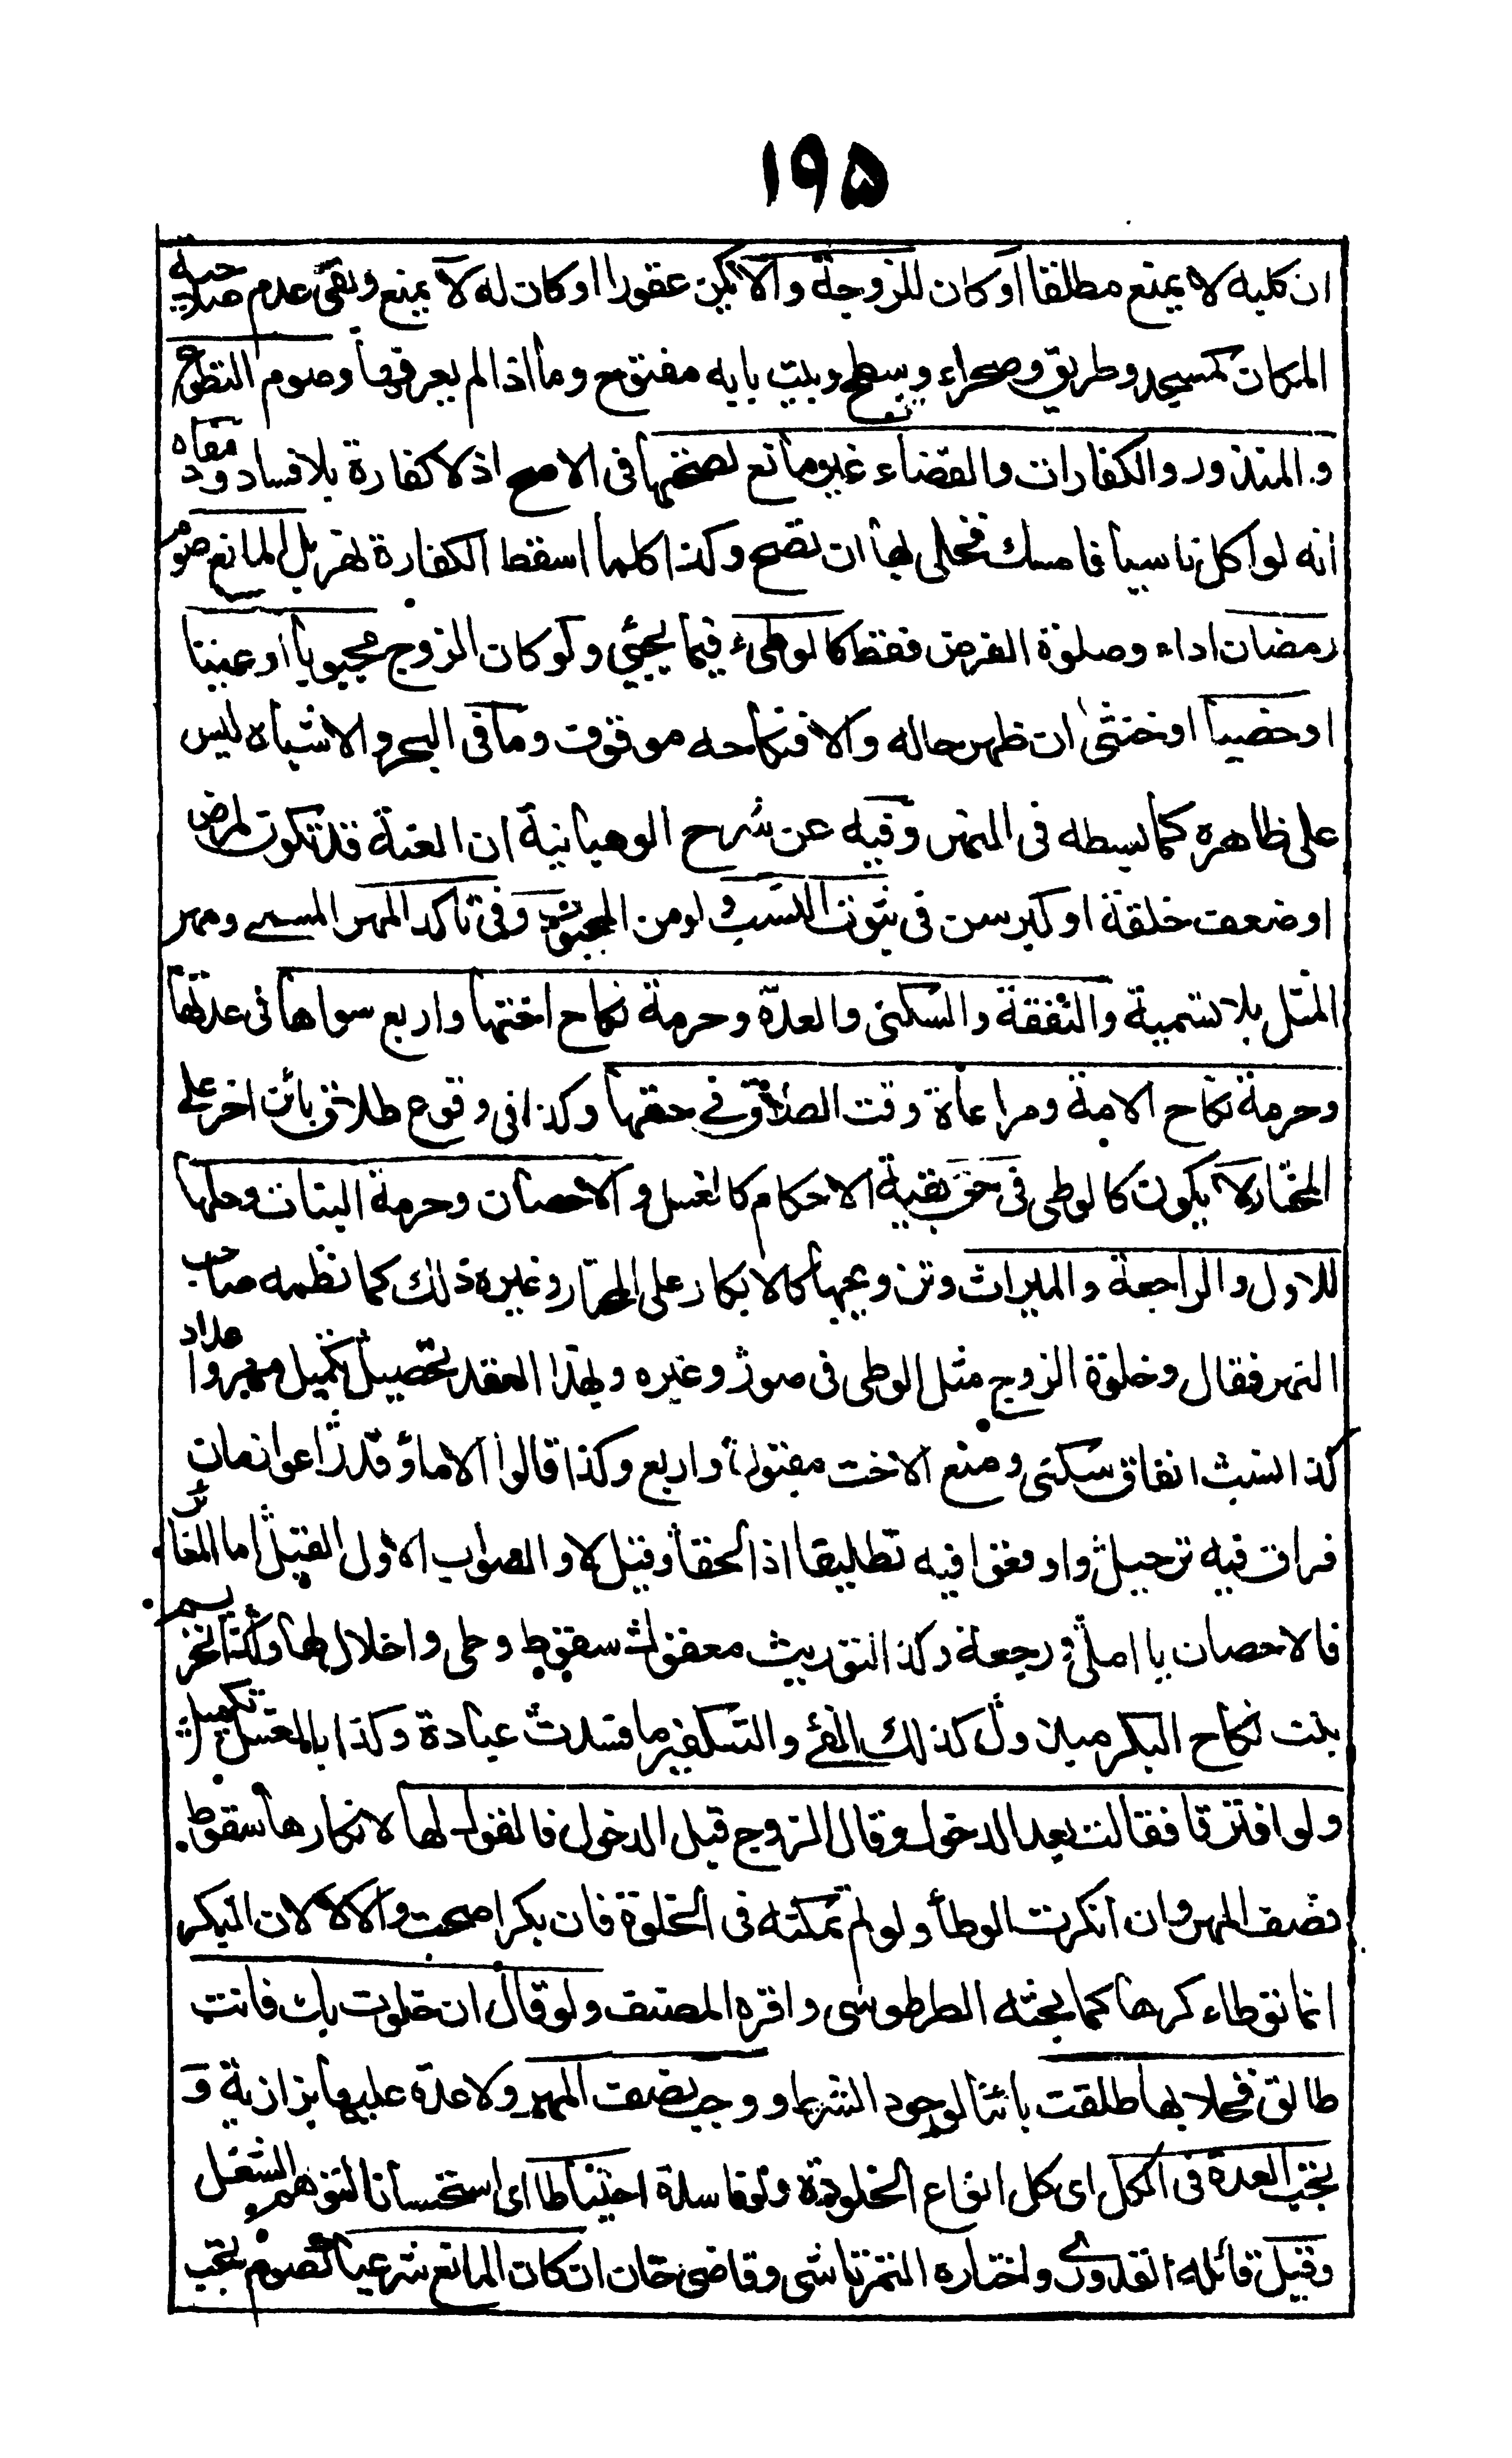 ١٩٥
ان كلبه لا يمنع مطلقا او كان للزوجة والا يكن عقورا او كان له لا يمنع وبقى عدم صلاحية
المكان كمسجد وطريق وصحراء وسطح وبيت بابه مفتوح وما اذا لم يعرفها وصوم التطوع
والمنذور والكفارات والقضاء غير مانع لصحتها فى الاصح اذ لا كفارة بالافساد ومفاده
انه لو اكل ناسيا فامسك فخلى بها ان تصح وكذا كلما اسقط الكفارة نهر بل المانع صوم
رمضان اداء وصلوة الفرض فقط كالوطىء فيما يجئ ولو كان الزوج مجبوبا او عنينا
او خصيا او خنثى ان ظهر حاله والا فنكاحه موقوف وما فى البحر والاشباه ليس
على ظاهره كما بسطه فى النهر وفيه عن شرح الوهبانية ان العنة قد تكون لمرض
او ضعف خلقة او كبر سن فى ثبوت النسب ولو من المجبوب وفى تاكد المهر المسمى ومهر
المثل بلا تسمية والنفقة والسكنى والعدة وحرمة نكاح اختها واربع سواها فى عدتها
وحرمة نكاح الامة ومراعاة وقت الطلاق فى حقها وكذا فى وقوع طلاق بائن اخر على
المختار لا يكون كالوطى فى حق بقية الاحكام كالغسل والاحصان وحرمة البنات وحلها
للاول والراجعة والميراث وتزويجها كالابكار على المختار وغيره ذلك كما نظمه صاحب
النهر فقال وخلوة الزوج مثل الوطى فى صور وغيره وبهذا العقد تحصيل تكميل مهر واعداد
كذا النسب انفاق سكنى ومنع الاخت مقبول واربع وكذا قالوا الاماؤ قد راعوا زمان
فراق فيه ترحيل واوقعوا فيه تطليقا اذا لحقا وقيل لا والصواب الاول القيل اما المغاير
فالاحصان يا املى ورجعة وكذا التوريث معقول سقوط وطى واحلال لها وكذا تحريم
بنت نكاح البكر مبذول كذلك الفئ والتكفير ما فسدت عبادة وكذا بالغسل تكميل
ولو افترقا فقالت بعد الدخول وقال الزوج قبل الدخول فالقول لها لانكارها سقوط
نصف المهر وان انكرت الوطأ ولو لم تمكنه فى الخلوة فان بكرا صحت والا لا لان البكر
انما توطاء كرها كما بحثه الطرطوسى واقره المصنف ولو قال ان خلوت بك فانت
طالق فخلا بها طلقت بائنا لوجود الشرط ووجب نصف المهر ولا عدة عليها بزازية و
تجب العدة فى الكل اى كل انواع الخلوة ولو فاسدة احتياطا اى استحسانا لتوهم الشغل
وقيل قائله القدورى واختاره التمرتاشى وقاضى خان ان كان المانع شرعيا كصوم تجب